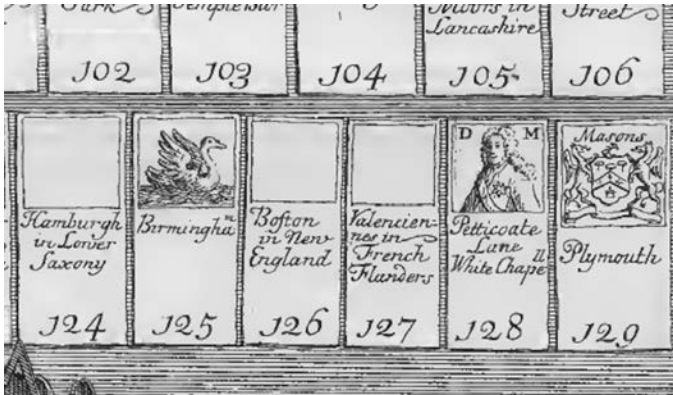 Temple Bar
Moors in
Lancashire
Street
102
103
104
105
106
Hamburgh
in Lower
Saxony
124
Birmingham
125
Boſton
in New
England
126
Valencien-
nes in
French
Flanders
127
D M
Petticoate
Lane
White Chapell
128
Masons
Plymouth
129